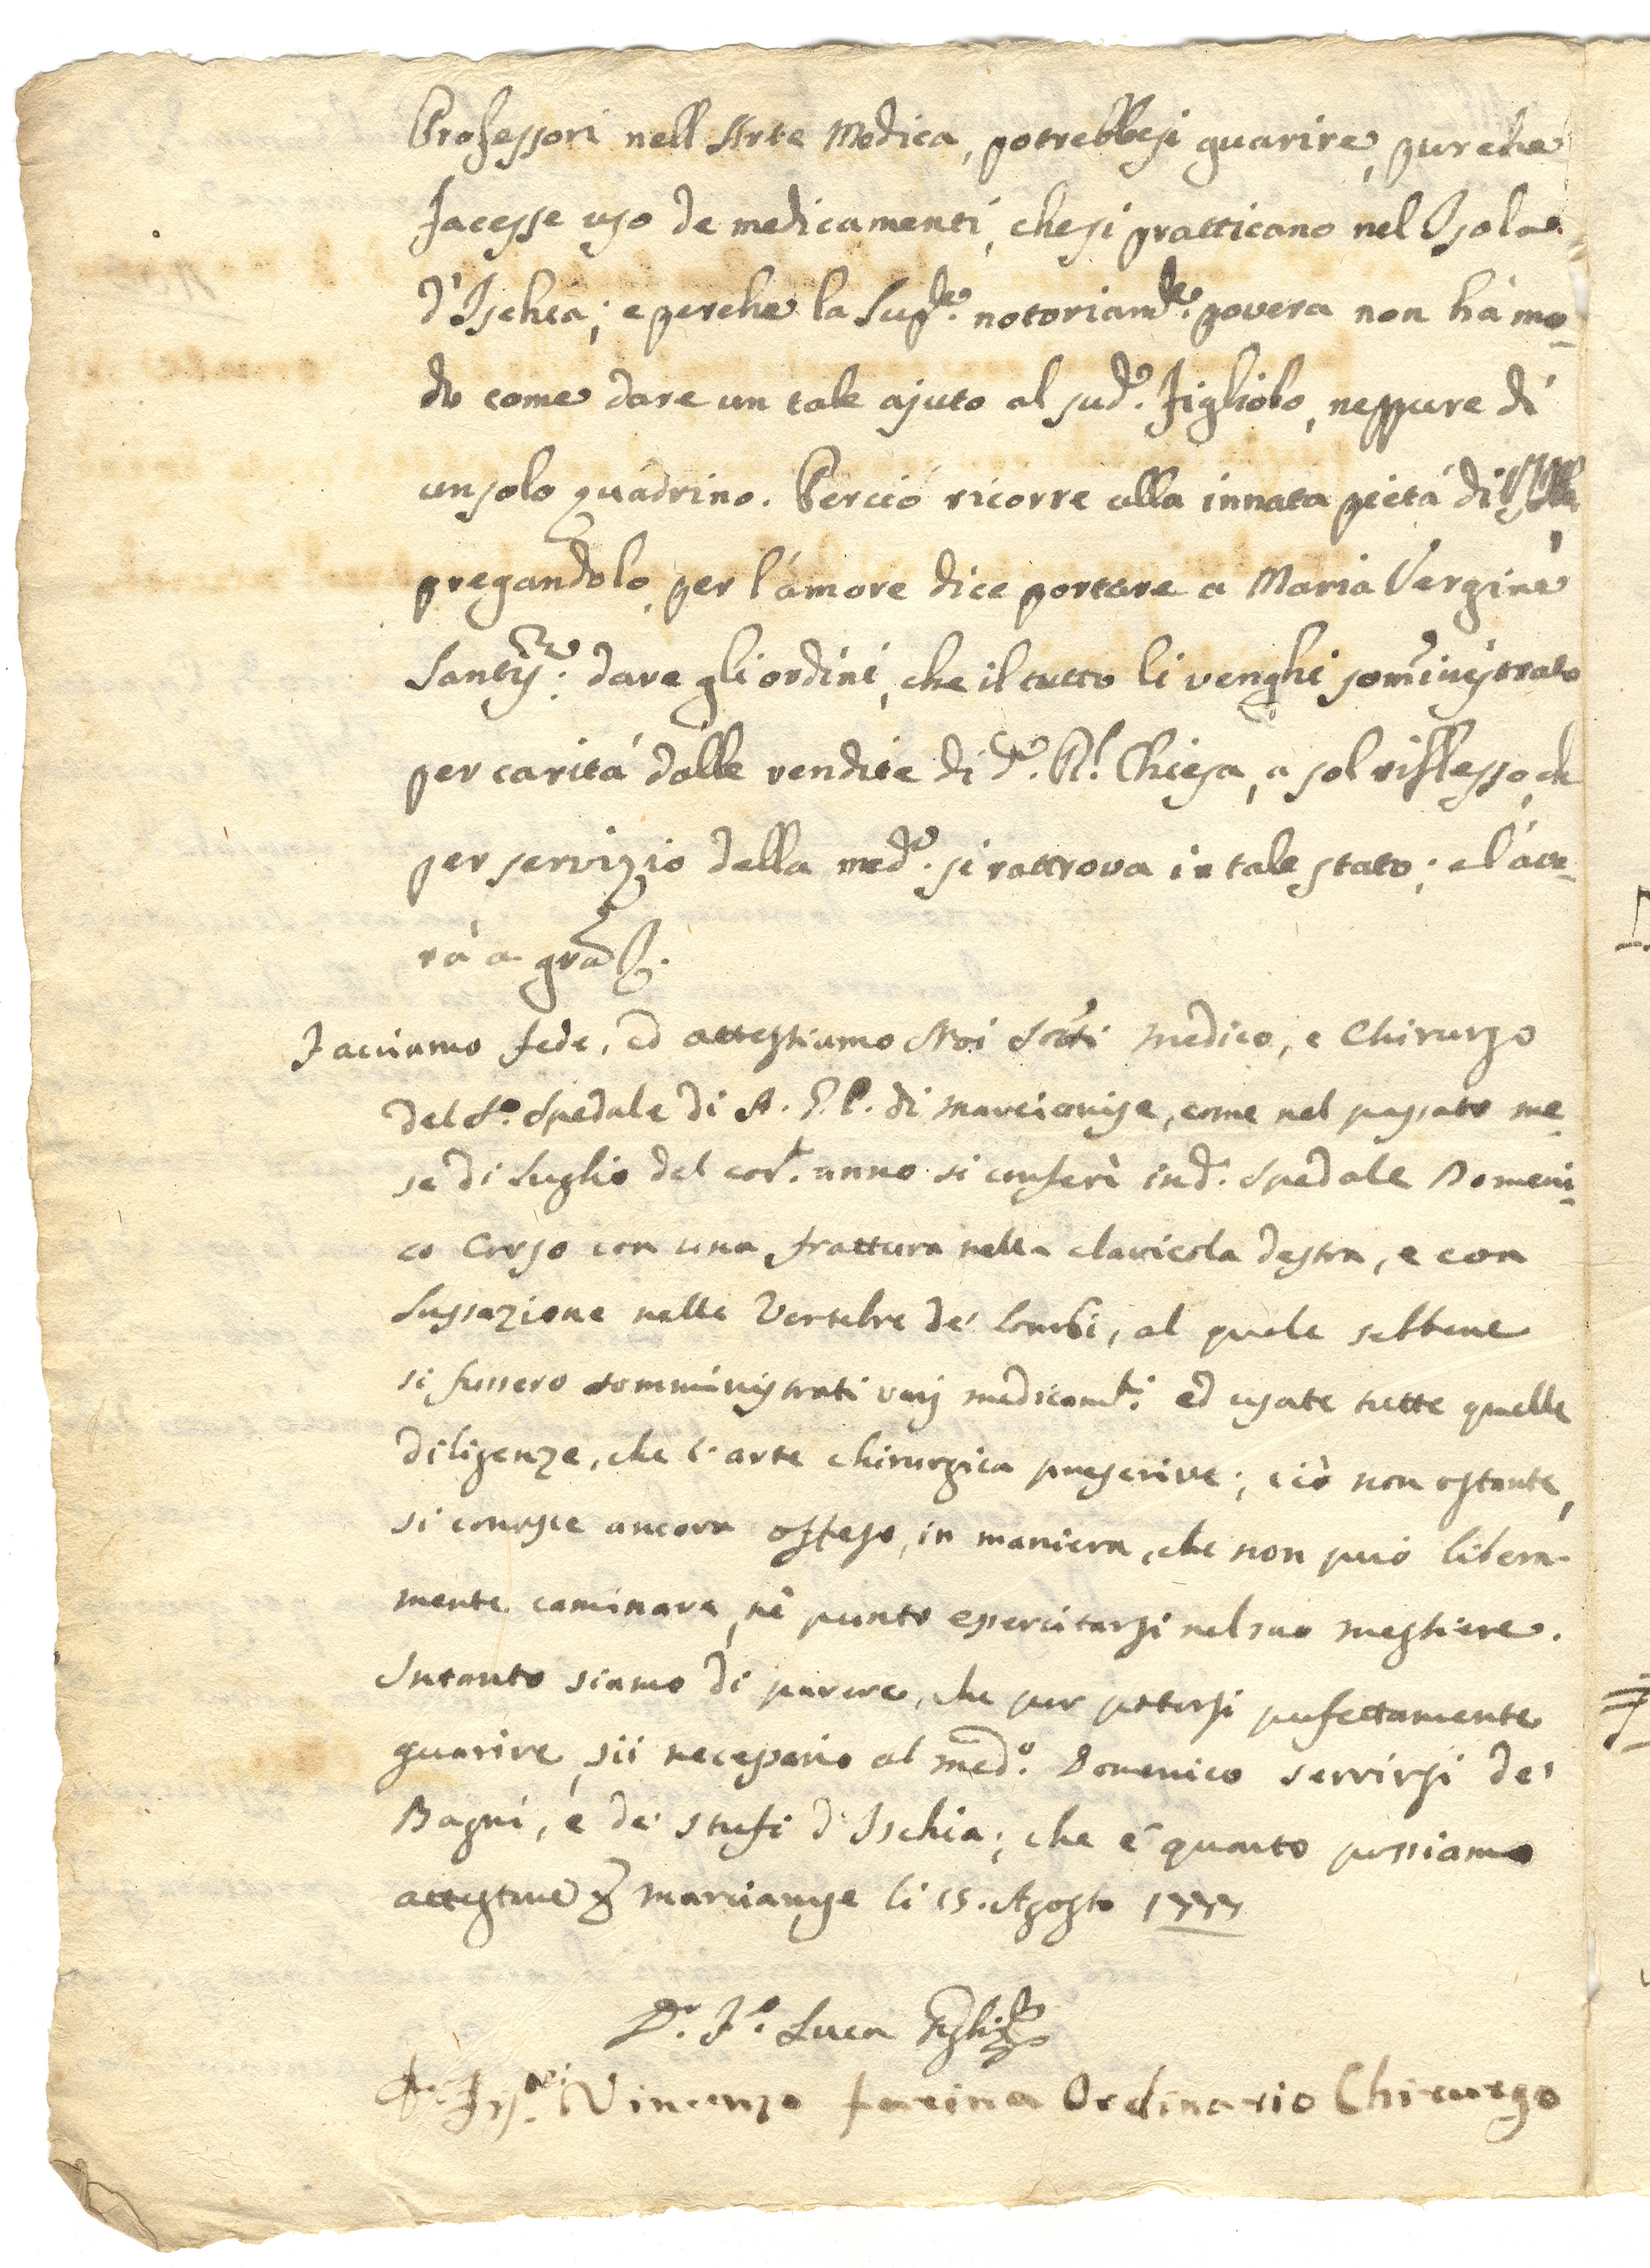 Professori nell'Arte Medica, potrebbesi guarire, purche
facesse uso de medicamenti, chesi pratticano nel Isola
d'Ischia; e perche la Supp.te notoriam.te povera non há mo-
do come dare un tale ajuto al sud.o figliolo, neppure di
un solo quadrino. Perció ricorre alla innata pietá di
pregandolo per l'amore dice portare a Maria Vergine
Santiss.ma dare gli ordini, che il tutto li venghi somministrato
per caritá dalle rendite di d.a R.l Chiesa, a sol riflesso, che
per servizio della med.a si rattrova in tale stato; e l'ave-
rà a gra
Facciamo fede, ed attestiamo Noi Sotti Medico, e Chirurgo
del S.o Spedale di A. G. P. di Marcianise, come nel passato me-
se di Luglio del cor.te anno si conferì in d.o Spedale Domeni-
co Corso con una frattura nella clavicola destra, e con
Lussazione nelle Vertebre de' Lombi, al quale sebbene
si fussero somministrati varj medicam.ti ed usate tutte quelle
diligenze, che l'arte chirurgica prescrive; ciò non ostante,
si conosce ancora offeso, in maniera, che non può libera-
mente caminare, nè punto esercitarsi nel suo mestiere.
Intanto siamo di parere, che per potersi perfettamente
guarire, sii necessario al med.o Domenico servirsi de'
Bagni, e de' stufi d'Ischia; che è quanto possiamo
attestare Marcianise li 15. Agosto 1777
D.r F.o Luca
Vincenzo Farina Ordinario Chirurgo